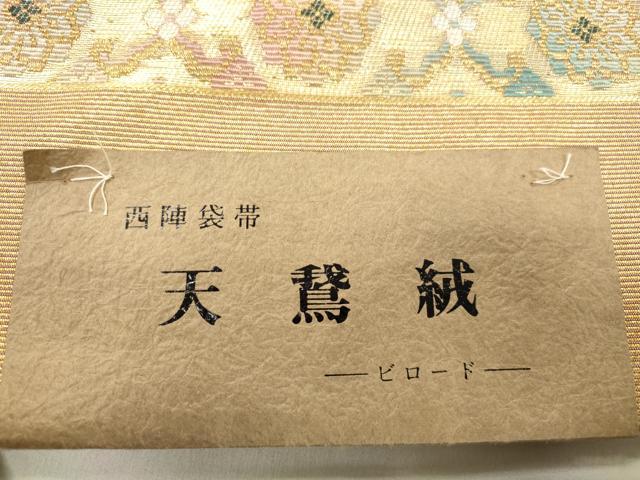 西陣袋帯
天鵞絨
―ビロード―